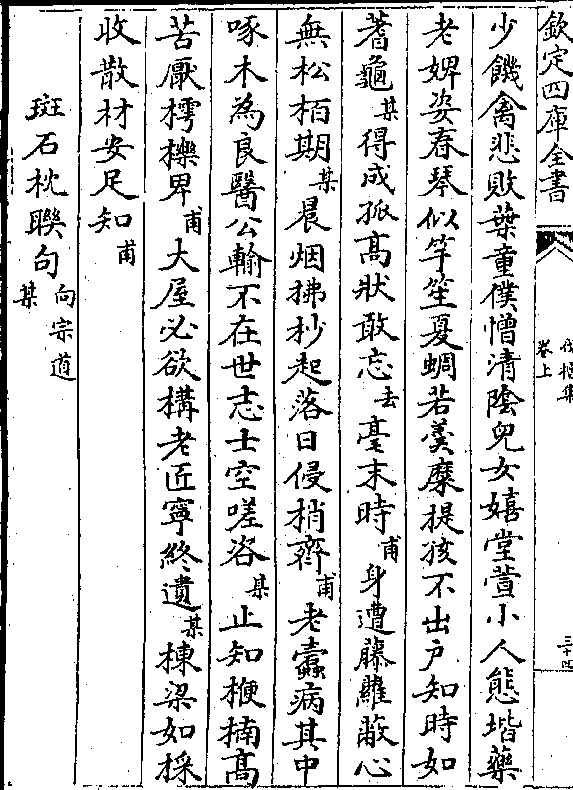 欽定四庫全書
伐檀集
卷上
三十四
少饑禽悲敗葉童僕憎清陰兒女嬉堂萱小人態堦藥
老婢姿春琴似竽笙夏蜩若羹糜提孩不出戶知時如
蓍龜某得成孤高狀敢忘去毫末時甫身遭藤蘿蔽心
無松栢期某晨烟拂杪起落日侵梢齊甫老蠧病其中
啄木為良醫公輸不在世志士空嗟咨某止知楩楠高
苦厭樗櫟卑甫大屋必欲構老匠寧終遺某棟梁如採
收散材安足知甫
斑石枕聯句向宗道某